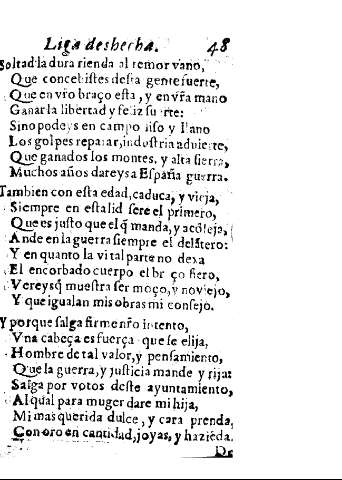 Liga deshecha. 48
Soltad la dura rienda al temor vano,
Que concebistes desta gente fuerte,
Que en vr̃o braço esta, y en vr̃a mano
Ganar la libertad y feliz suerte:
Sino podeys en campo liso y llano
Los golpes reparar, industria advierte,
Que ganados los montes, y alta sierra,
Muchos años dareys a España guerra.
Tambien con esta edad, caduca, y vieja,
Siempre en esta lid sere el primero,
Que es justo que el q̃ manda, y acõseja,
Ande en la guerra siempre el delãtero:
Y en quanto la vital parte no dexa
El encorbado cuerpo el braço fiero,
Vereys q̃ muestra ser moço, y no viejo,
Y que igualan mis obras mi consejo.
Y porque salga firme nr̃o intento,
Vna cabeça es fuerça que se elija,
Hombre de tal valor, y pensamiento,
Que la guerra, y justicia mande y rija:
Salga por votos deste ayuntamiento,
Al qual para muger dare mi hija,
Mi mas querida dulce, y cara prenda,
Con oro en cantidad, joyas, y haziẽda.
De